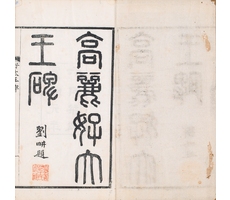 高麗好大
王碑
劉畊題